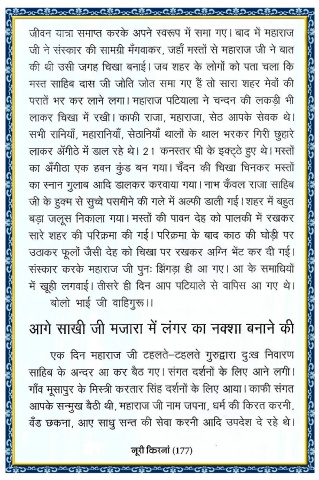 जीवन यात्रा समाप्त करके अपने स्वरूप में समा गए। बाद में महाराज
जी ने संस्कार की सामग्री मँगवाकर, जहाँ मस्तों से महाराज जी ने बात
की थी उसी जगह चिखा बनाई। जब शहर के लोगों को पता चला कि
मस्त साहिब दास जी जोति जोत समा गए हैं तो सारा शहर मेवों की
परातें भर कर लाने लगा। महाराजा पटियाला ने चन्दन की लकड़ी भी
लाकर चिखा में रखी। काफी राजा, महाराजा, सेठ आपके सेवक थे।
सभी रानियाँ, महारानियाँ, सेठानियाँ थालों के थाल भरकर गिरी छुहारे
लाकर अँगीठे में डाल रहे थे। 21 कनस्तर घी के इक्ट्ठे हुए थे। मस्तों
का अँगीठा एक हवन कुंड बन गया। चँदन की चिखा चिनकर मस्तों
का स्नान गुलाब आदि डालकर करवाया गया। नाभ कँवल राजा साहिब
जी के हुक्म से सुच्चे पसमीने की गले में अल्फी डाली गई। शहर में बहुत
बड़ा जलूस निकाला गया। मस्तों की पावन देह को पालकी में रखकर
सारे शहर की परिक्रमा की गई। परिक्रमा के बाद काठ की घोड़ी पर
उठाकर फूलों जैसी देह को चिखा पर रखकर अग्नि भेंट कर दी गई।
संस्कार करके महाराज जी पुनः झिंगड़ा ही आ गए। आ के समाधियों
में खूही लगवाई। तीसरे ही दिन आप पटियाले से वापिस आ गए थे।
बोलो भाई जी वाहिगुरू।।
आगे साखी जी मजारा में लंगर का नक्शा बनाने की
एक दिन महाराज जी टहलते-टहलते गुरुद्वारा दुःख निवारण
साहिब के अन्दर आ कर बैठ गए। संगत दर्शनों के लिए आने लगी।
गाँव मूसापुर के मिस्त्री करतार सिंह दर्शनों के लिए आया। काफी संगत
आपके सन्मुख बैठी थी, महाराज जी नाम जपना, धर्म की किरत करनी,
वँड छकना, आए साधु सन्त की सेवा करनी आदि उपदेश दे रहे थे।
नूरी किरनां (177)